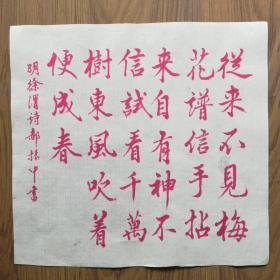 從来不見梅
花譜信手拈
来自有神不
信試看千萬
樹東風吹着
便成春
明徐渭诗郝振中書